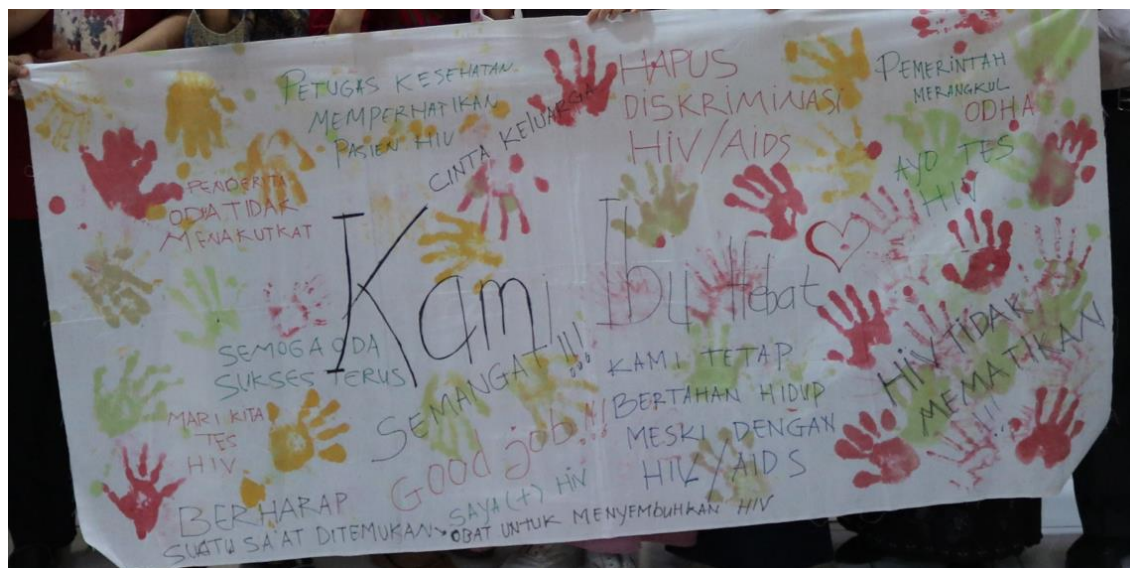 PETUGAS KESEHATAN
MEMPERHATIKAN
PASIEN HIV
CINTA KELUARGA
HAPUS
DISKRIMINASI
HIV/AIDS
PEMERINTAH
MERANGKUL
ODHA
AYO TES
HIV
PENDERITA
ODIA TIDAK
MENAKUTKAT
Kami Ibu Hebat
SEMOGA ODA
SUKSES TERUS
SEMANGAT!!!
Good job!!!
KAMI TETAP
BERTAHAN HIDUP
MESKI DENGAN
HIV/AIDS
HIV TIDAK
MEMATIKAN
!!!
MARI KITA
TES
HIV
SAYA (+) HIV
BERHARAP
SUATU SA'AT DITEMUKAN OBAT UNTUK MENYEMBUHKAN HIV